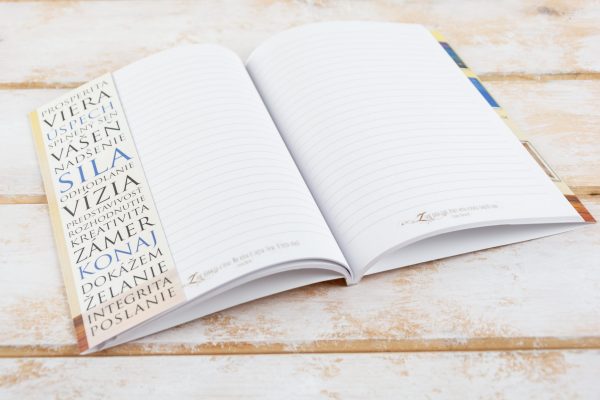 PROSPERITA
VIERA
ÚSPECH
SPLNENÝ SEN
VÁŠEŇ
NADŠENIE
SILA
ODHODLANIE
VÍZIA
PREDSTAVIVOSŤ
ROZHODNUTIE
KREATIVITA
ZÁMER
KONAJ
DOKÁŽEM
ŽELANIE
INTEGRITA
POSLANIE